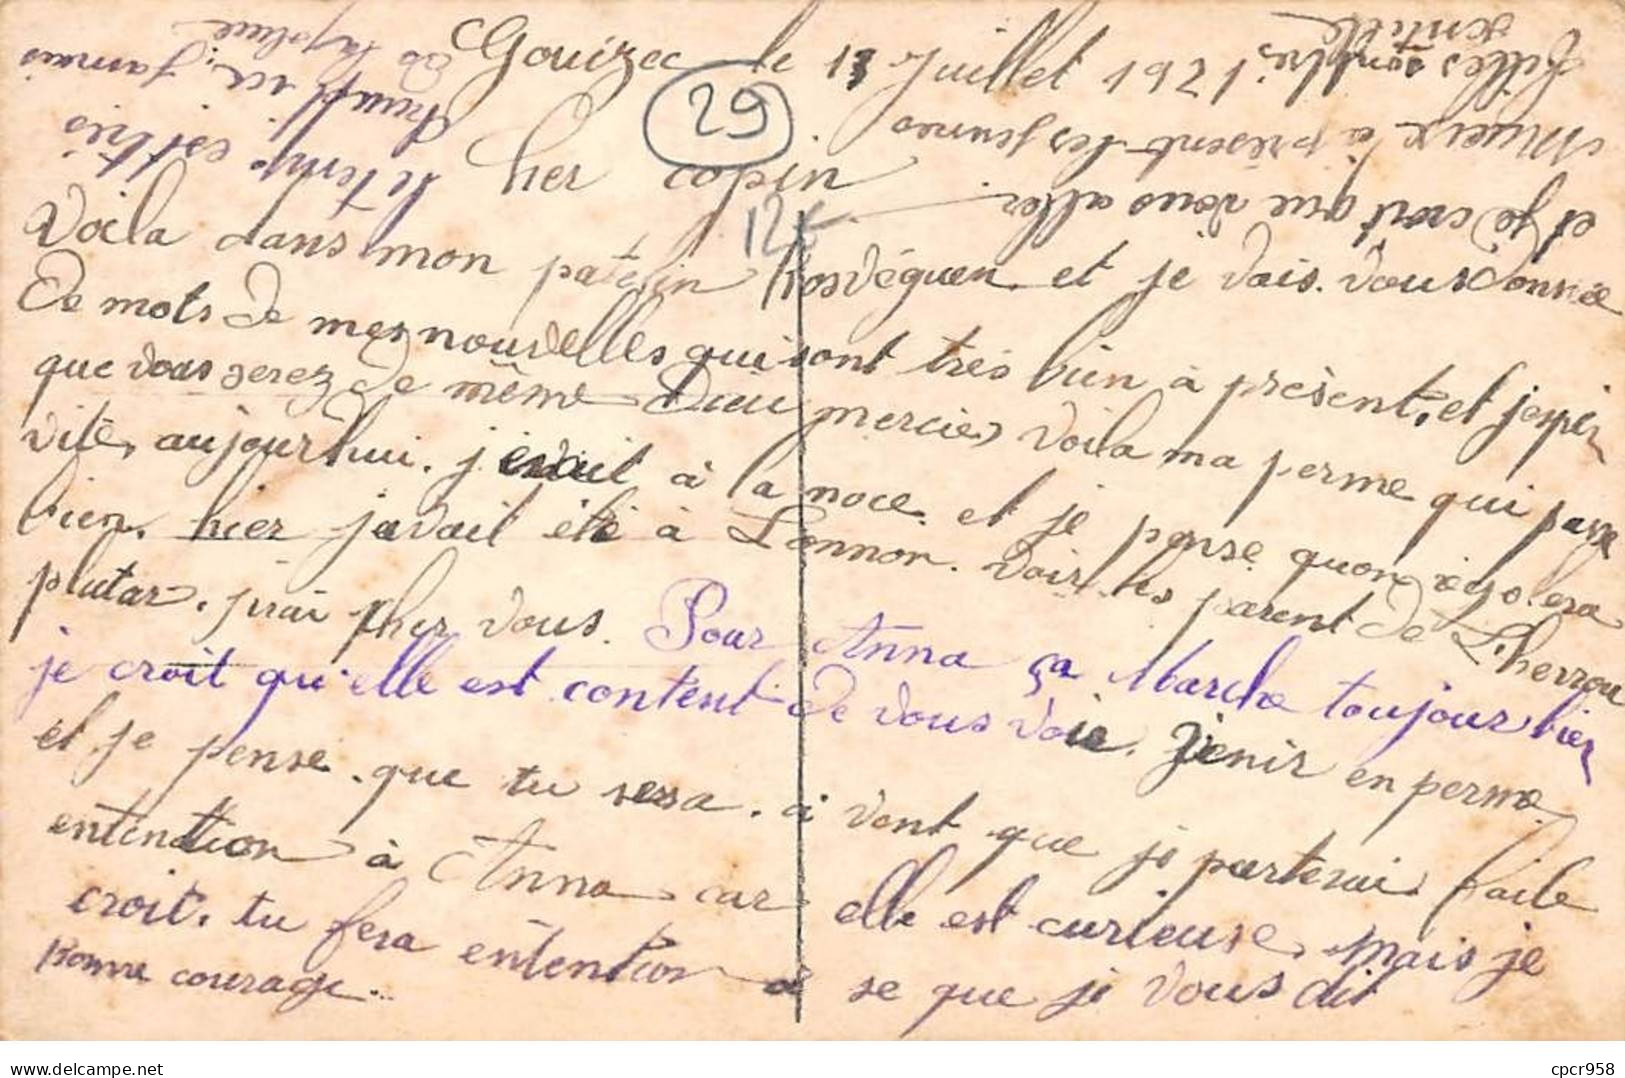 Gouizec le 13 Juillet 1921
29
Cher copin
12€
Voila dans mon patelin Kosvéguen et je vais vous donnée
De mots de mes nouvelles qui sont très bien à présent, et jespér
que vous serez de même Dieu mercie, Voila ma perme qui passe
vite, aujourdhui. j'ewait à la noce. et je pense quon rigolera
bien. hier javait été à Lannon. voir les parent de L'herrou
plutar. jirai cher vous. Pour Anna ça Marche toujour bien
je croit qu'elle est content de vous voie. venir en perme
et je pense. que tu sera. à vent que je parterai. faite
entention à Anna car elle est curieuse, Mais je
croit. tu fera entention à se que je vous dit
Bonne courage...
et je croit que vous aller
Mieux à présent les jeunes
filles sont très
gentille
le temps est très
chauff ici. jamais
de la pluie
Delcampe.net
cpcr958